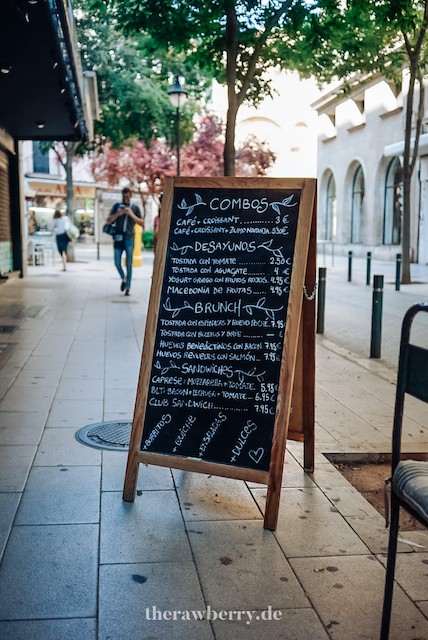 COMBOS
CAFÉ + CROISSANT ...... 3 €
CAFÉ + CROISSANT + ZUMO NARANJA 5.50€
DESAYUNOS
TOSTADA CON TOMATE ..... 2.50€
TOSTADA CON AGUACATE .... 4 €
YOGURT GRIEGO CON FRUTOS ROJOS 4.95€
MACEDONIA DE FRUTAS .... 4.95€
BRUNCH
TOSTADA CON ESPINACAS Y HUEVO POCHÉ 7.95
HUEVOS BENEDICTINOS CON BACON 7.95
HUEVOS REVUELTOS CON SALMÓN 7.95€
SANDWICHES
CAPRESE: MOZZARELLA + TOMATE 5.95
BLT: BACON + LECHUGA + TOMATE 6.95€
CLUB SANDWICH ........ 7.95€
+BURRITOS
+QUICHE
+ENSALADAS
+DULCES
therawberry.de